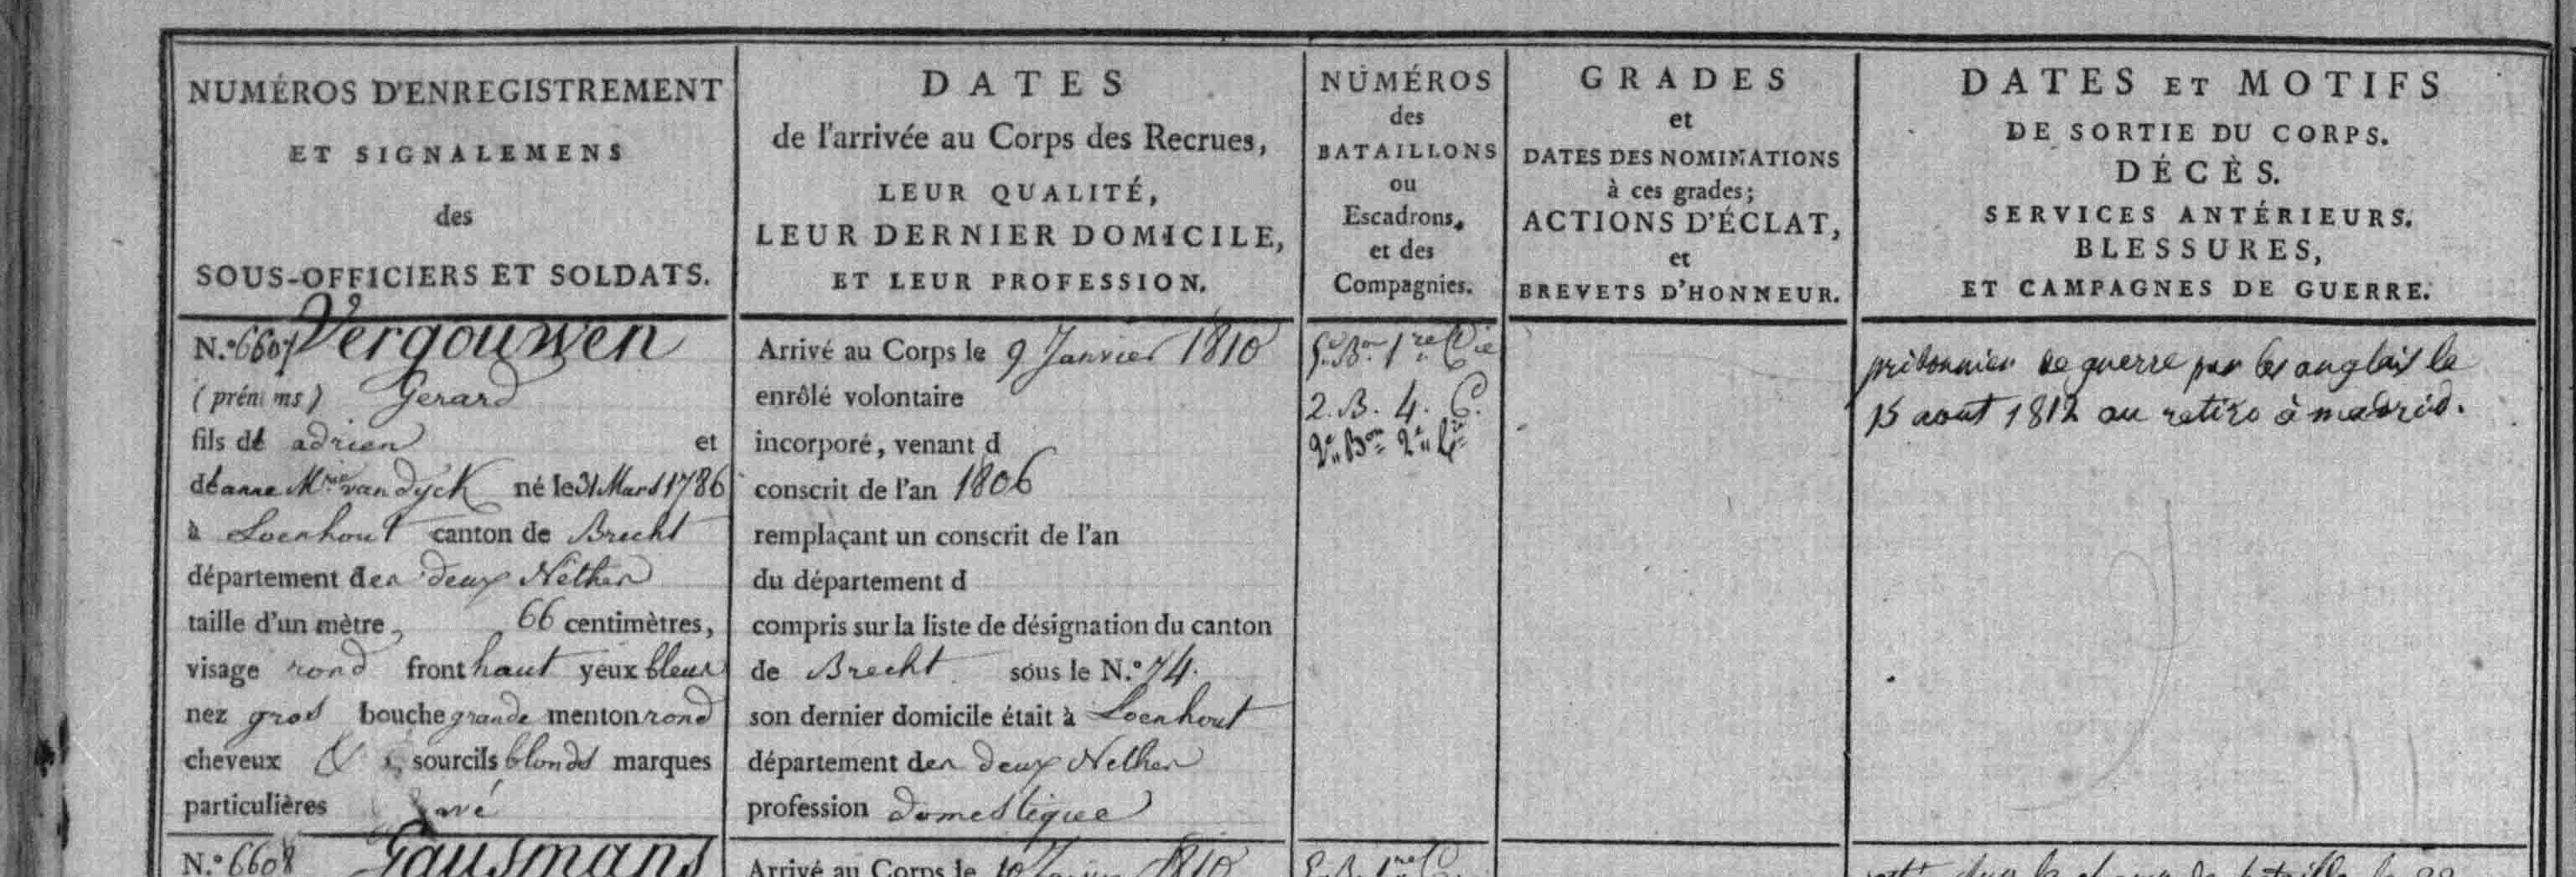 NUMÉROS D'ENREGISTREMENT
ET SIGNALEMENS
des
SOUS-OFFICIERS ET SOLDATS.
DATES
de l'arrivée au Corps des Recrues,
LEUR QUALITÉ,
LEUR DERNIER DOMICILE,
ET LEUR PROFESSION.
NUMÉROS
des
BATAILLONS
ou
Escadrons,
et des
Compagnies.
GRADES
et
DATES DES NOMINATIONS
à ces grades;
ACTIONS D'ÉCLAT,
et
BREVETS D'HONNEUR.
DATES ET MOTIFS
DE SORTIE DU CORPS.
DÉCÈS.
SERVICES ANTÉRIEURS.
BLESSURES,
ET CAMPAGNES DE GUERRE.
N.º 6607 Vergouwen
(prénoms) Gerard
fils de adrien et
de anne Mrie van dyck né le 31 Mars 1786
à Loenhout canton de Brecht
département des deux Nèthes
taille d'un mètre, 66 centimètres,
visage rond front haut yeux bleus
nez gros bouche grande menton rond
cheveux & sourcils blonds marques
particulières
Arrivé au Corps le 9 Janvier 1810
enrôlé volontaire
incorporé, venant d
conscrit de l'an 1806
remplaçant un conscrit de l'an
du département d
compris sur la liste de désignation du canton
de Brecht sous le N.º 74.
son dernier domicile était à Loenhout
département des deux Nethes
profession domestique
5e Bon 1re Cie
2. B. 4. C.
2e Bon 2e Cie
prisonnier de guerre par les anglais le
15 aout 1812 au retiro à madrid.
N.º 6608
Arrivé au Corps le 10 1810